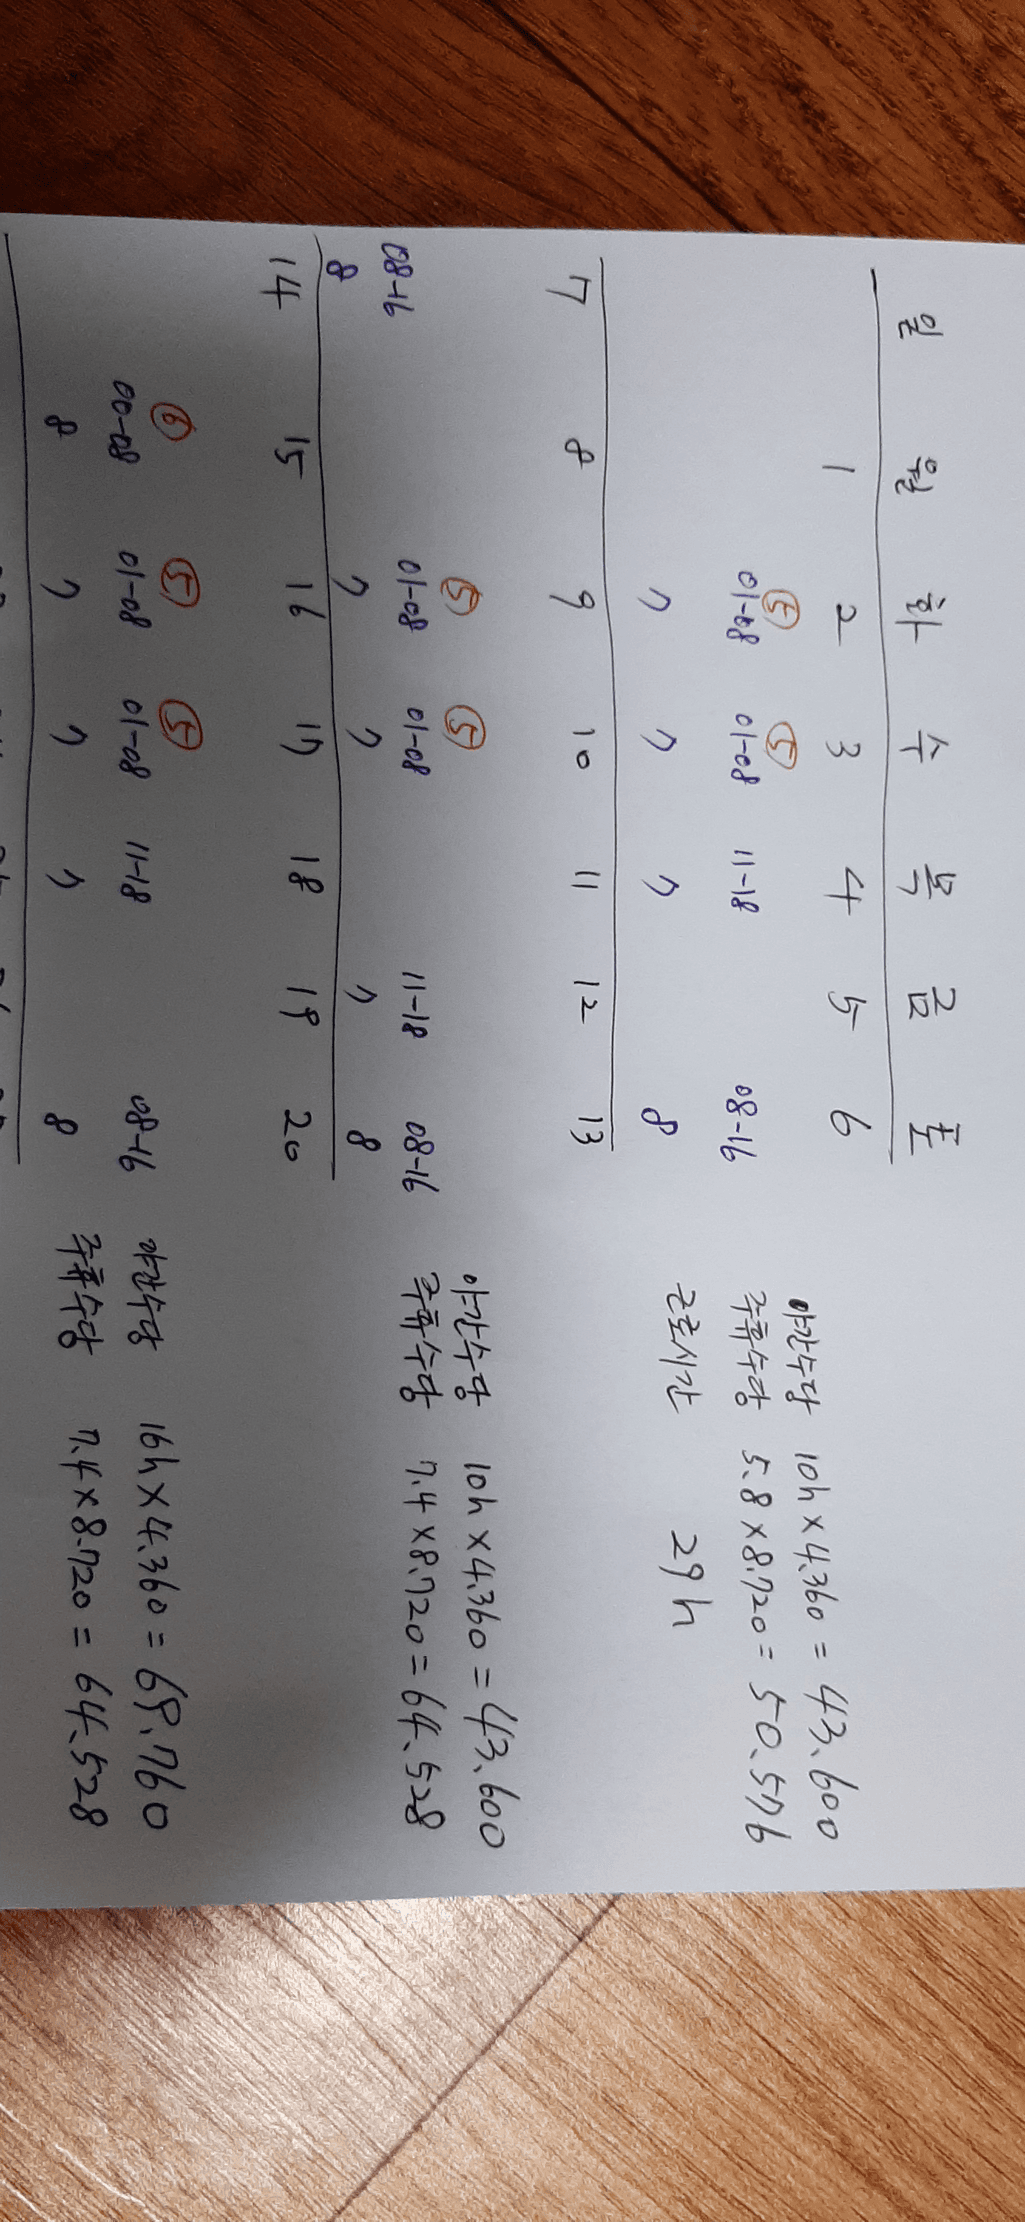 일 월 화 수 목 금 토
1 2 3 4 5 6
⑤ ⑤
01-08 01-08 11-18 08-16
7 7 7 8
야간수당 10h × 4.360 = 43.600
주휴수당 5.8 × 8.720 = 50.576
근로시간 29h
7 8 9 10 11 12 13
⑤ ⑤
08-16 01-08 01-08 11-18 08-16
8 7 7 7 8
야간수당 10h × 4.360 = 43.600
주휴수당 7.4 × 8.720 = 64.528
14 15 16 17 18 19 20
⑥ ⑤ ⑤
00-08 01-08 01-08 11-18 08-16
8 7 7 7 8
야간수당 16h × 4.360 = 69.760
주휴수당 7.4 × 8.720 = 64.528